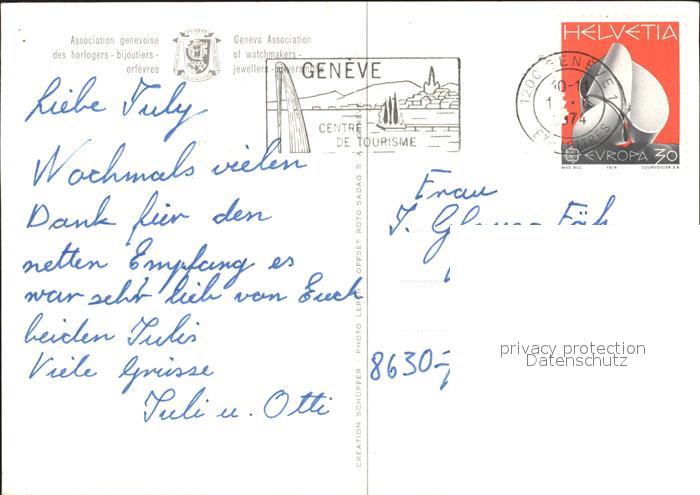 Association genevoise
des horlogers - bijoutiers -
orfèvres
Geneva Association
of watchmakers -
jewellers -
GENÈVE
CENTRE
DE TOURISME
1200 GENÈVE
1974
HELVETIA
EUROPA 30
MAX BILL 1974 COURVOISIER S.A.
Liebe July
Nochmals vielen
Dank für den
netten Empfang es
war sehr lieb von Euch
beiden Julis
Viele Grüsse
Juli u. Otti
Frau
J.
8630
CRÉATION SCHÜPFER PHOTO OFFSET ROTO-SADAG S.A.
privacy protection
Datenschutz